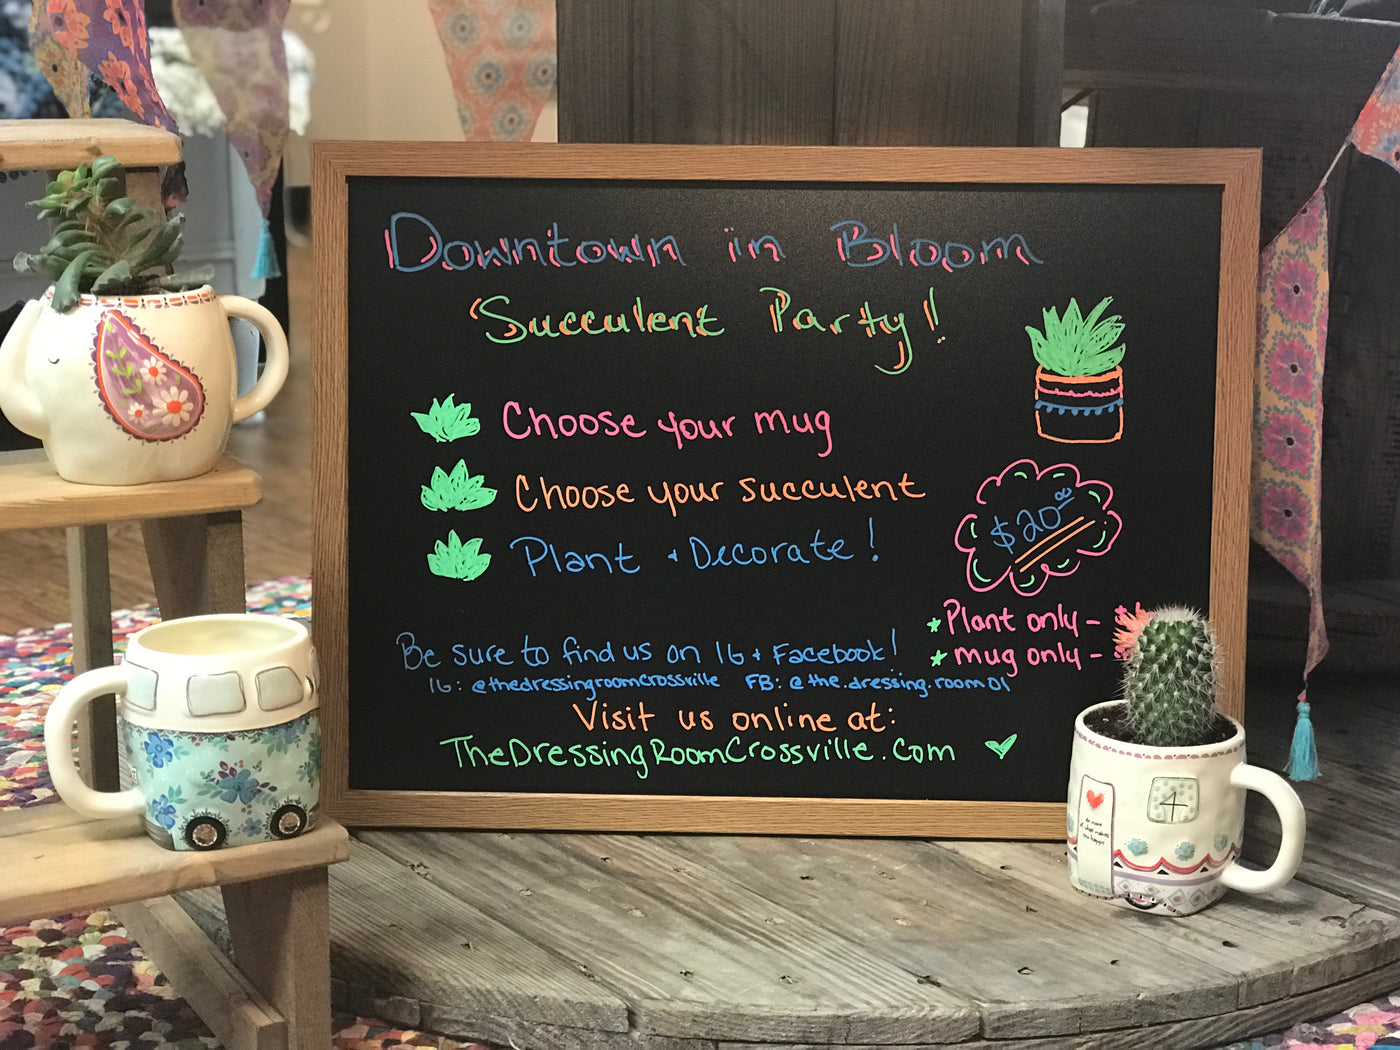 Downtown in Bloom
Succulent Party!
Choose your mug
Choose your succulent
Plant + Decorate!
$20.00
*Plant only -
*mug only -
Be sure to find us on IG + Facebook!
IG: @thedressingroomcrossville FB: @the.dressing.room01
Visit us online at:
TheDressingRoomCrossville.com
do more
of what makes
you happy